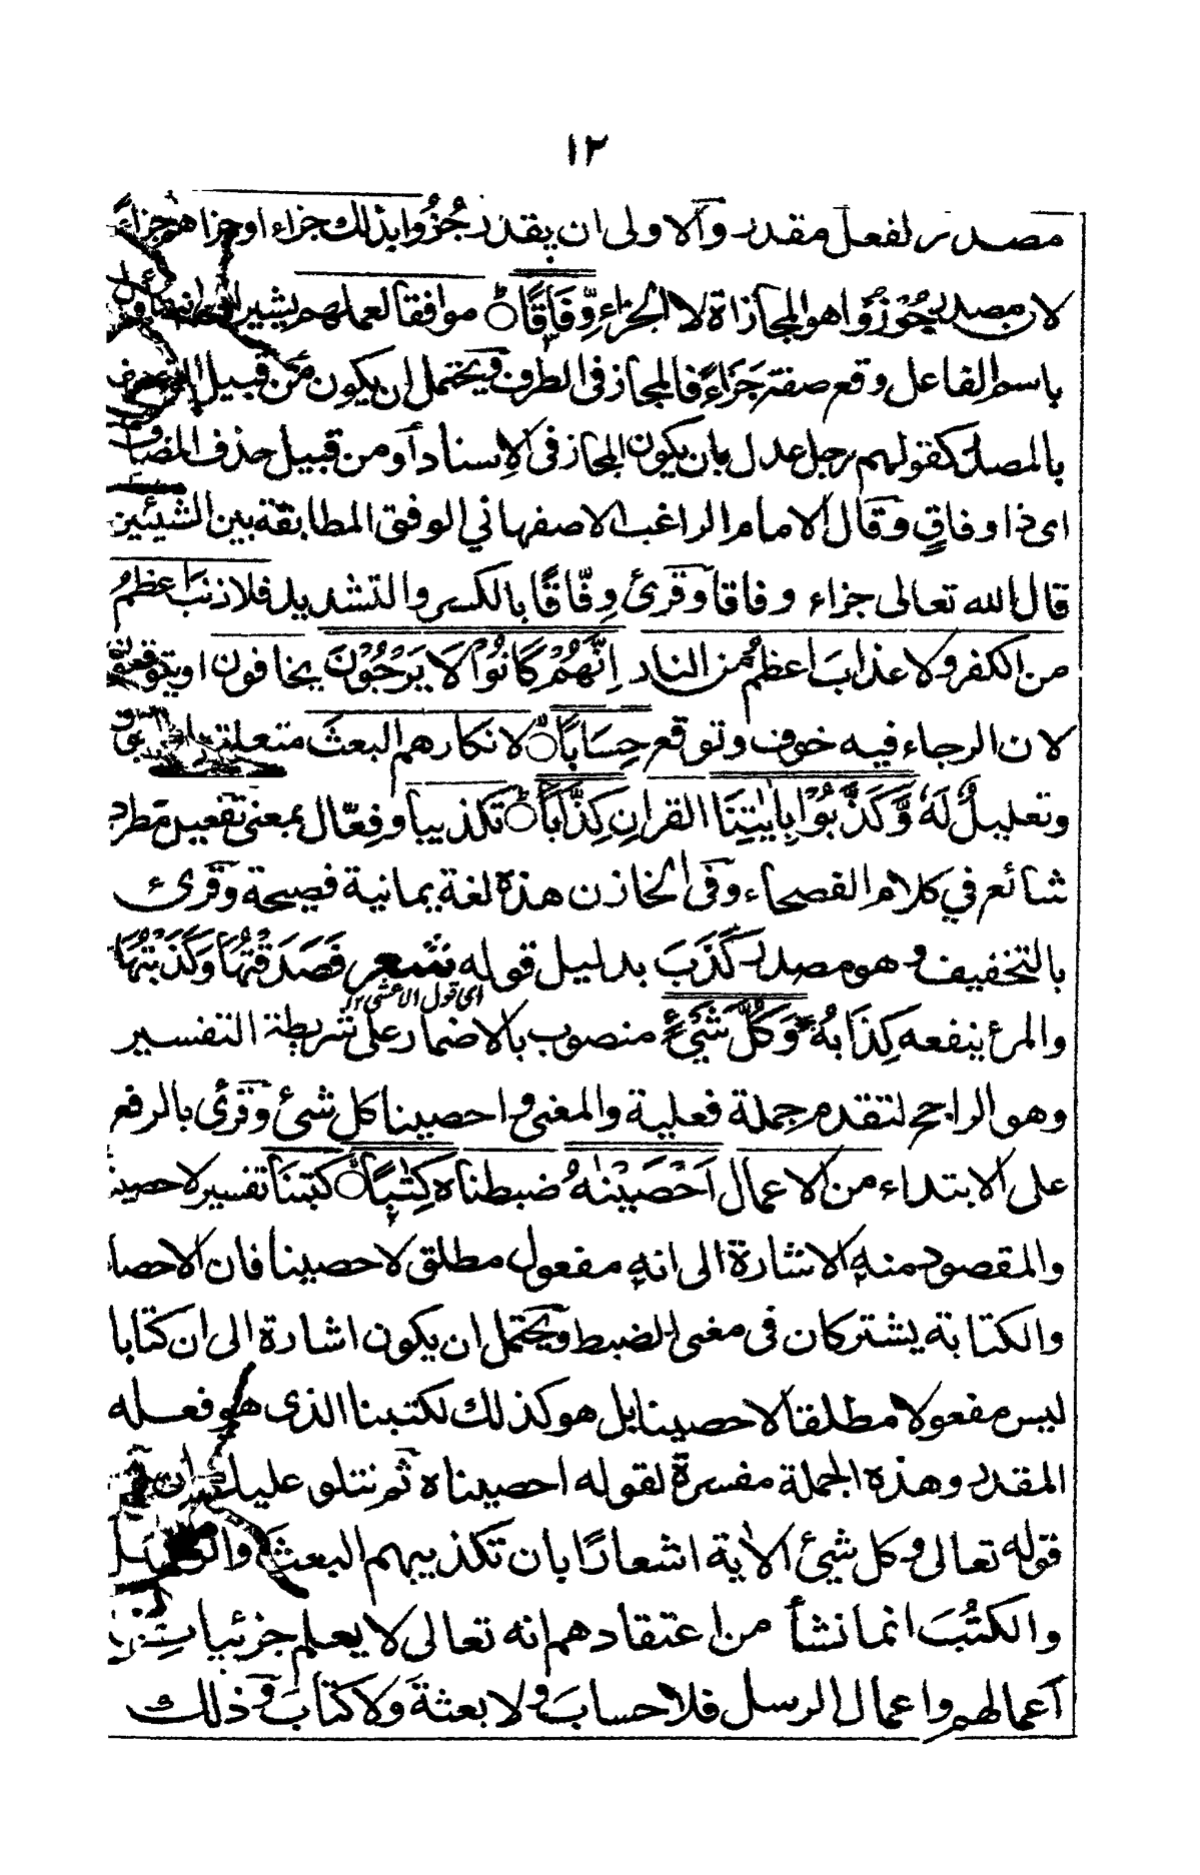 ١٢
مصدر لفعل مقدر والاولى ان يقدر جُزُوا بذلك جزاء او جزاهم جزاءً
لان مصدر جُوْزُوا هو المجازاة لا الجزاء وِّفَاقًا موافقا لعملهم يشير
باسم الفاعل وقع صفة جَزَاءً فالمجاز فى الطرف ويحتمل ان يكون من قبيل
بالمصدر كقولهم رجل عدل بان يكون المجاز فى الاسناد او من قبيل حذف المضاف
اى ذا وفاقٍ وقال الامام الراغب الاصفهاني الوفق المطابقة بين الشيئين
قال الله تعالى جزاء وفاقا وقرئ وِفّاقًا بالكسر والتشديد فلا ذنبَ اعظمُ
من الكفر ولا عذابَ اعظمُ من النار اِنَّهُمْ كَانُوْا لَا يَرْجُوْنَ يخافون او يتوقعون
لان الرجاء فيه خوف وتوقع حِسَابًا لانكارهم البعث متعلق
وتعليلٌ لَهٗ وَّكَذَّبُوْا بِاٰيٰتِنَا القراٰنِ كِذَّابًا تكذيبا وفِعّال بمعنى تفعيل مطرد
شائع في كلام الفصحاء وفى الخازن هذه لغة يمانية فصيحة وقرئ
بالتخفيف وهو مصدر كَذَبَ بدليل قوله شعر فَصَدَقْتُهَا وَكَذَبْتُهَا
اى قول الاعشى ١٢
والمرءُ ينفعه كِذَابُهٗ وَكُلَّ شَيْءٍ منصوب بالاضمار على شريطة التفسير
وهو الراجح لتقدم جملة فعلية والمعنى واحصينا كل شئ وقرئ بالرفع
على الابتداء من الاعمال اَحْصَيْنٰهُ ضبطناه كِتٰبًا كتبنا تفسير لاحصينا
والمقصود منه الاشارة الى انه مفعول مطلق لاحصينا فان الاحصا
والكتابة يشتركان فى معنى الضبط ويحتمل ان يكون اشارة الى ان كتابا
ليس مفعولا مطلقا لاحصينا بل هو كذلك لكتبنا الذى هو فعله
المقدر وهذه الجملة مفسرة لقوله احصيناه ثم نتلو عليك ان فى
قوله تعالى وكل شئ الاٰية اشعارًا بان تكذيبهم البعث
والكتُبَ انما نشأ من اعتقادهم انه تعالى لا يعلم جزئيات
اعمالهم واعمال الرسل فلا حساب ولا بعثة ولا كتاب وفى ذلك